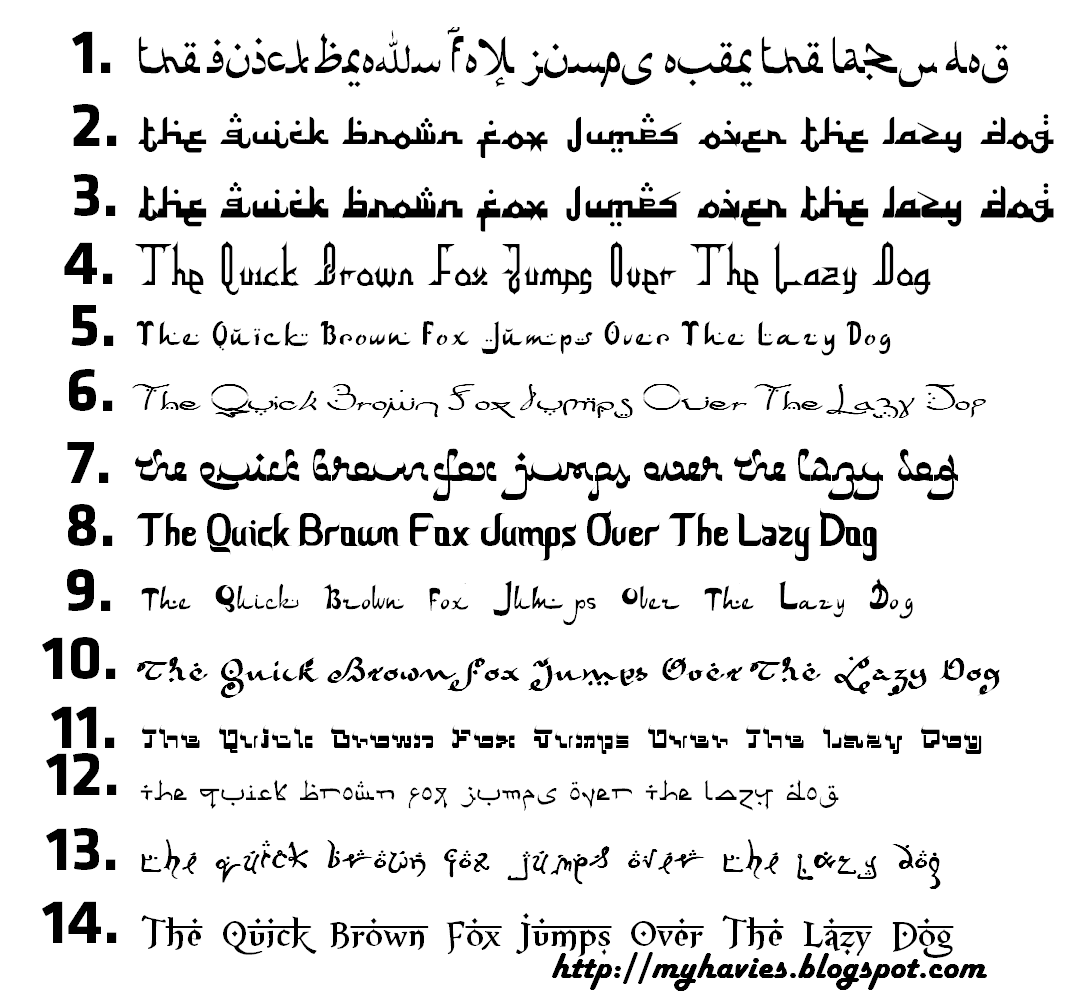 1. the quick brown fox jumps over the lazy dog
2. the quick brown fox jumps over the lazy dog
3. the quick brown fox jumps over the lazy dog
4. The Quick Brown Fox Jumps Over The Lazy Dog
5. The Quick Brown Fox Jumps Over The Lazy Dog
6. The Quick Brown Fox Jumps Over The Lazy Dog
7. the quick brown fox jumps over the lazy dog
8. The Quick Brown Fox Jumps Over The Lazy Dog
9. The Quick Brown Fox Jumps Over The Lazy Dog
10. The Quick Brown Fox Jumps Over The Lazy Dog
11. The Quick Brown Fox Jumps Over The Lazy Dog
12. the quick brown fox jumps over the lazy dog
13. the quick brown fox jumps over the lazy dog
14. The Quick Brown Fox Jumps Over The Lazy Dog
http://myhavies.blogspot.com